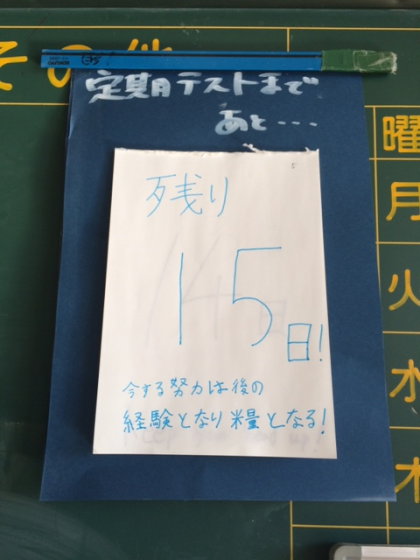 その他
定期テストまで
あと・・・
残り
15
日!
今する努力は後の
経験となり糧となる!
曜
月
火
水
木